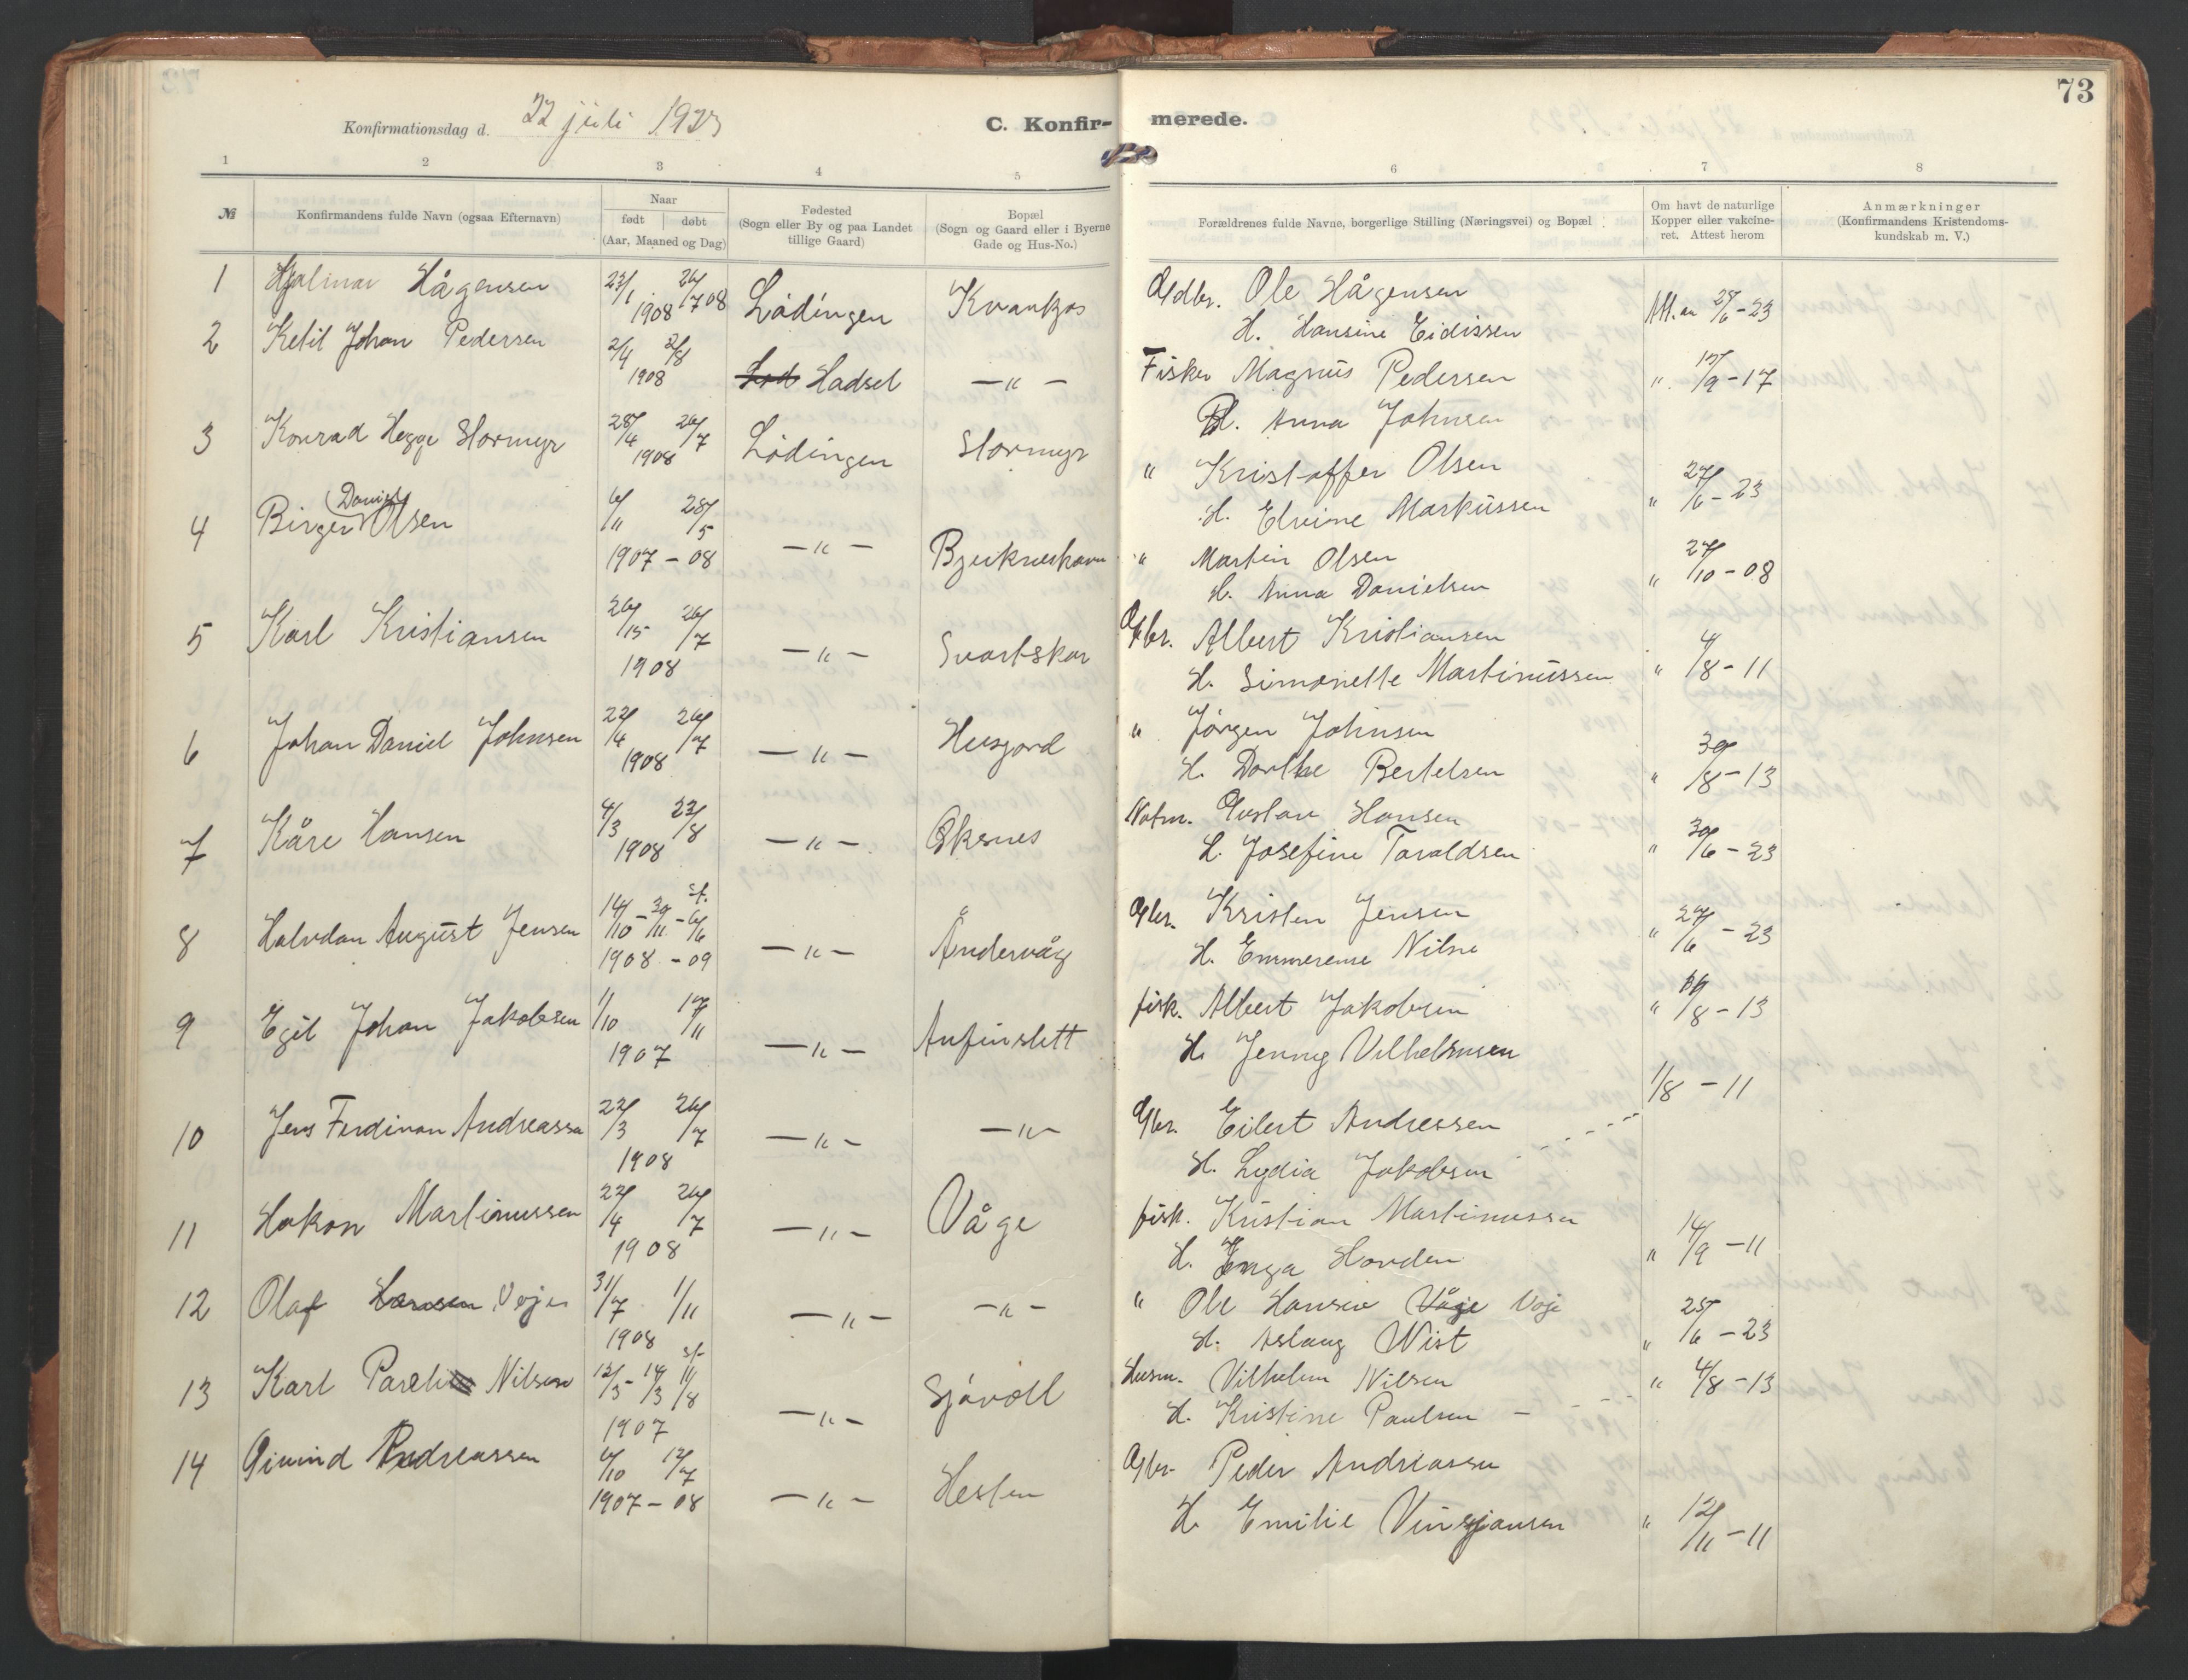 73
Konfirmationsdag d. 22 juli 1923
C. Konfir- merede.
1 2 3 4 5 6 7 8
№
Konfirmandens fulde Navn (ogsaa Efternavn)
Naar
født døbt
(Aar, Maaned og Dag)
Fødested
(Sogn eller By og paa Landet
tillige Gaard)
Bopæl
(Sogn og Gaard eller i Byerne
Gade og Hus-No.)
Forældrenes fulde Navne, borgerlige Stilling (Næringsvei) og Bopæl
Om havt de naturlige
Kopper eller vakcine-
ret. Attest herom
Anmærkninger
(Konfirmandens Kristendoms-
kundskab m. V.)
1 Hjalmar Hågensen 23/1 1908 26/7 08 Lødingen Kvankjos Gdbr. Ole Hågensen Att. av 28/6-23
H. Hansine Eidissen
2 Ketil Johan Pedersen 2/4 2/8 1908 Hadsel —"— Fisker Magnus Pedersen " 17/9-17
H. Anna Johnsen
3 Konrad Hegge Stormyr 28/4 26/7 1908 Lødingen Stormyr " Kristoffer Olsen " 27/6-23
H. Elvine Markussen
4 Birger Daniel Olsen 6/11 28/5 1907-08 —"— Bjerkneshavn " Martin Olsen " 24/10-08
H. Anna Danielsen
5 Karl Kristiansen 26/15 26/7 1908 —"— Svartskar Gbr. Albert Kristiansen " 4/8-11
H. Simonette Martinussen
6 Johan Daniel Johnsen 22/4 26/7 1908 —"— Husjord " Jørgen Johnsen " 30/8-13
H. Dorthe Bertelsen
7 Kåre Hansen 4/3 23/8 1908 —"— Øksnes Notm. Gustav Hansen " 30/6-23
H. Josefine Taraldsen
8 Halvdan August Jensen 14/10-30/11-6/6 st. 1908-09 —"— Åndervåg Gbr. Kristen Jensen " 27/6-23
H. Emmerense Nilsne
9 Egil Johan Jakobsen 1/10 17/11 1907 —"— Anfinslett fisk. Albert Jakobsen " /8-13
H. Jenny Vilhelmsen
10 Jens Ferdinan Andreassen 22/3 26/7 1908 —"— —"— Gbr. Eilert Andressen 1/8-11
H. Lydia Jakobsen
11 Hakon Martinussen 22/4 26/7 1908 —"— Våge fisk. Kristian Martinussen " 14/9-11
H. Enga Hovden
12 Olaf Hansen Voje 31/7 1/11 1908 —"— —"— " Ole Hansen Våge Voje " 25/6-23
H. Aslaug Wist
13 Karl Pareli Nilsen 12/3-14/3 11/8 st. 1907 —"— Sjåvoll Husm. Vilhelm Nilsen " 4/8-13
H. Kristine Paulsen
14 Øivind Andreassen 6/10 12/7 1907-08 —"— Hesten Gbr. Peder Andreassen
H. Emilie Vinsjansen " 12/11-11